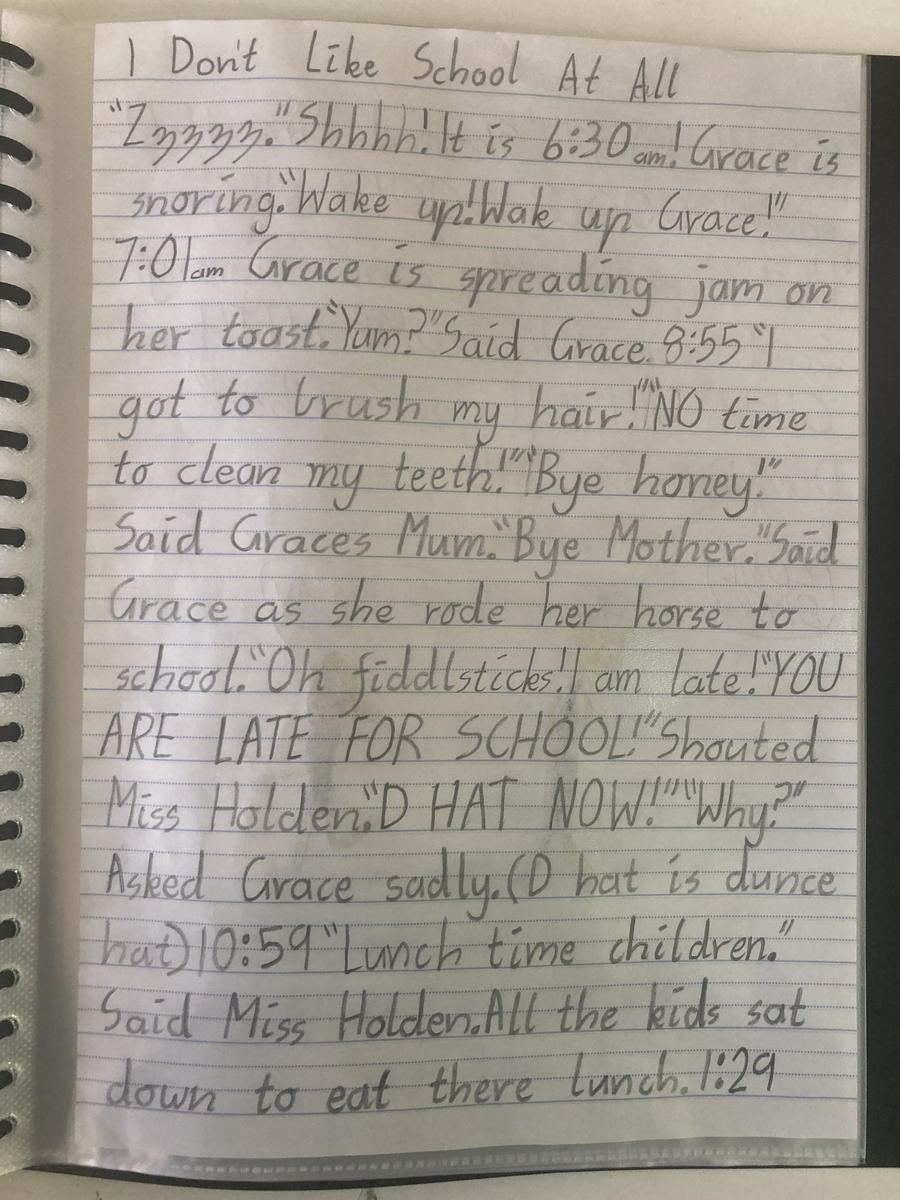 I Don't Like School At All
"Zzzzz." Shhhh! It is 6:30am! Grace is
snoring. "Wake up! Wak up Grace!"
7:01am Grace is spreading jam on
her toast. "Yum?" Said Grace. 8:55 "I
got to brush my hair!" "NO time
to clean my teeth!" "Bye honey!"
Said Graces Mum. "Bye Mother." Said
Grace as she rode her horse to
school. "Oh fiddlsticks! I am late! "YOU
ARE LATE FOR SCHOOL!" Shouted
Miss Holden. "D HAT NOW!" "Why?"
Asked Grace sadly. (D hat is dunce
hat) 10:59 "Lunch time children."
Said Miss Holden. All the kids sat
down to eat there lunch. 1:29